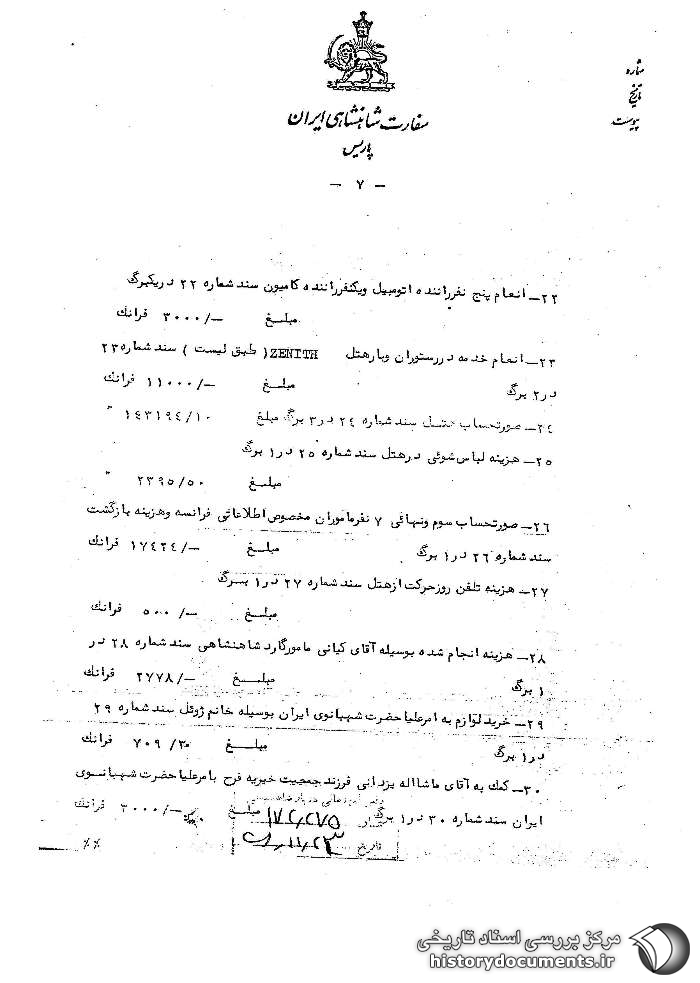 سفارت شاهنشاهی ایران
پاریس
شماره
تاریخ
پیوست
- ۷ -
۲۲- انعام پنج نفر راننده اتومبیل ویکنفر راننده کامیون سند شماره ۲۲ در یکبرگ
مبلغ ۳۰۰۰/- فرانك
۲۳- انعام خدمه در رستوران وبار هتل ZENITH ( طبق لیست ) سند شماره ۲۳
در ۲ برگ مبلغ ۱۱۰۰۰/- فرانك
۲۴- صورتحساب هتل سند شماره ۲۴ در ۳ برگ مبلغ ۱۴۳۱۹۴/۱۰ "
۲۵- هزینه لباس شوئی در هتل سند شماره ۲۵ در ۱ برگ
مبلغ ۲۳۹۵/۵۰ "
۲۶- صورتحساب سوم ونهائی ۷ نفر ماموران مخصوص اطلاعاتی فرانسه وهزینه بازگشت
سند شماره ۲۶ در ۱ برگ مبلغ ۱۷۴۲۴/- فرانك
۲۷- هزینه تلفن روز حرکت از هتل سند شماره ۲۷ در ۱ برگ
مبلغ ۵۰۰/- فرانك
۲۸- هزینه انجام شده بوسیله آقای کیانی مامور گارد شاهنشاهی سند شماره ۲۸ در
۱ برگ مبلغ ۲۷۷۸/- فرانك
۲۹- خرید لوازم به امر علیاحضرت شهبانوی ایران بوسیله خانم ژوئل سند شماره ۲۹
در ۱ برگ مبلغ ۷۰۹/۳۰ فرانك
۳۰- کمك به آقای ماشااله یزدانی فرزند جمعیت خیریه فرح بامر علیاحضرت شهبانوی
ایران سند شماره ۳۰ در ۱ برگ مبلغ ۳۰۰۰/- فرانك
تاریخ
مرکز بررسی اسناد تاریخی
historydocuments.ir